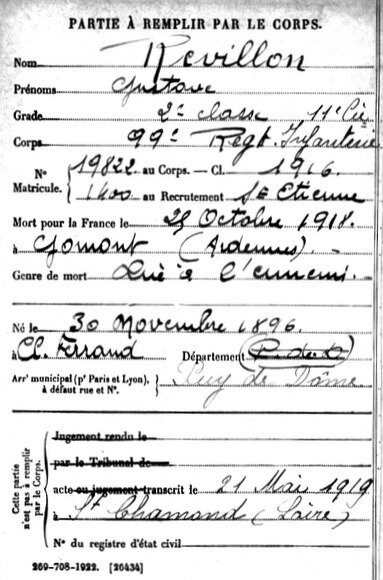 PARTIE À REMPLIR PAR LE CORPS.
Nom Revillon
Prénoms Gustave
Grade 2e classe 11e Cie
Corps 99e Regt Infanterie
N° Matricule. { 19822 au Corps. — Cl. 1916
1400 au Recrutement St Etienne
Mort pour la France le 25 Octobre 1918.
à Gomont (Ardennes). -
Genre de mort Tué à l'ennemi. -
Né le 30 Novembre 1896.
à Cl. Ferrand Département (P. de D)
Arrt municipal (pr Paris et Lyon), à défaut rue et N°. } Puy de Dôme
Cette partie n'est pas à remplir par le Corps.
Jugement rendu le
par le Tribunal de
acte ou jugement transcrit le 21 Mai 1919
à St Chamond (Loire)
N° du registre d'état civil
269-708-1922. [26434]